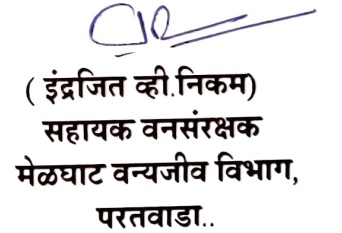 ( इंद्रजित व्ही.निकम)
सहायक वनसंरक्षक
मेळघाट वन्यजीव विभाग,
परतवाडा..